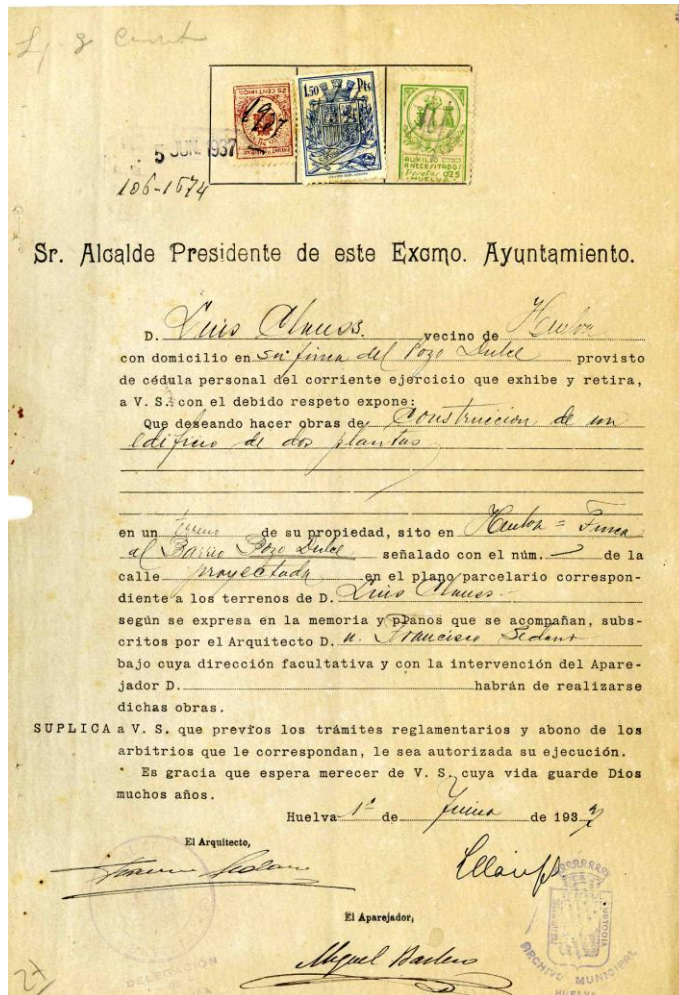 5 JUN. 1937
106-1674
25 CENTIMOS
1,50 Pts
AUXILIO
A NECESITADOS
Pesetas 0'25
HUELVA
Sr. Alcalde Presidente de este Excmo. Ayuntamiento.
D. Luis Clauss. vecino de Huelva
con domicilio en su finca del Pozo Dulce provisto
de cédula personal del corriente ejercicio que exhibe y retira,
a V. S. con el debido respeto expone:
Que deseando hacer obras de Construccion de un
edificio de dos plantas
en un Terreno de su propiedad, sito en Huelva = Finca
al Barrio Pozo Dulce señalado con el núm. de la
calle proyectada en el plano parcelario correspon-
diente a los terrenos de D. Luis Clauss.
según se expresa en la memoria y planos que se acompañan, subs-
critos por el Arquitecto D. Francisco Sedano
bajo cuya dirección facultativa y con la intervención del Apare-
jador D. habrán de realizarse
dichas obras.
SUPLICA a V. S. que previos los trámites reglamentarios y abono de los
arbitrios que le correspondan, le sea autorizada su ejecución.
Es gracia que espera merecer de V. S. cuya vida guarde Dios
muchos años.
Huelva 1º de Junio de 1937
El Arquitecto,
El Aparejador,
Miguel Barbero
DELEGACIÓN
CUSTODIA
ARCHIVO MUNICIPAL
HUELVA